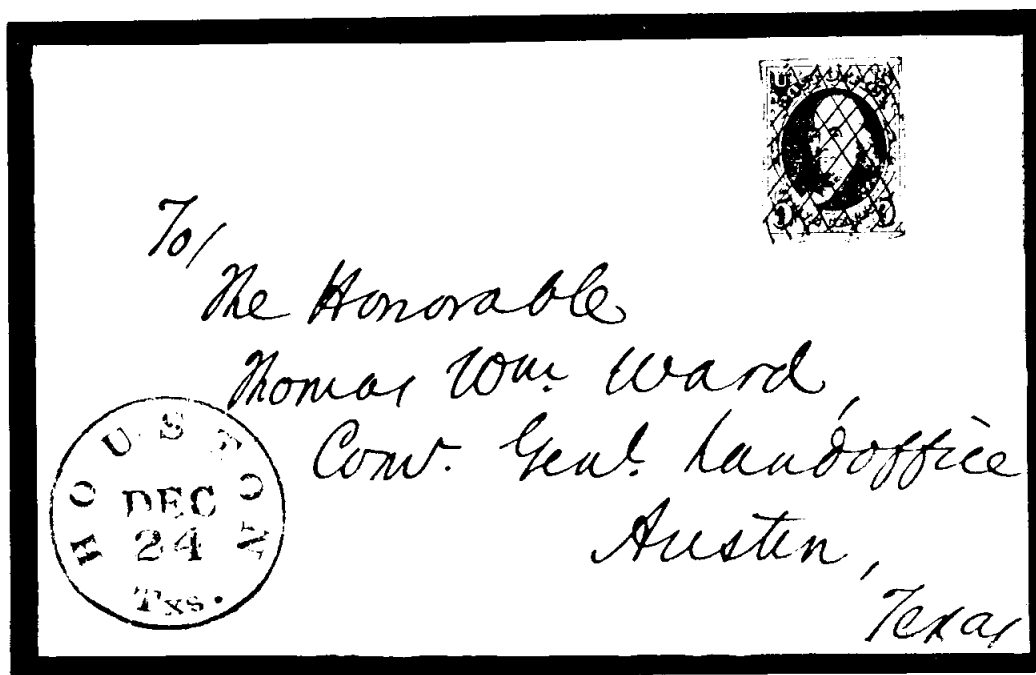 U
To/
The Honorable
Thomas Wm. Ward,
Genl. Landoffice
Austin,
Texas
HOUSTON
DEC
24
Txs.